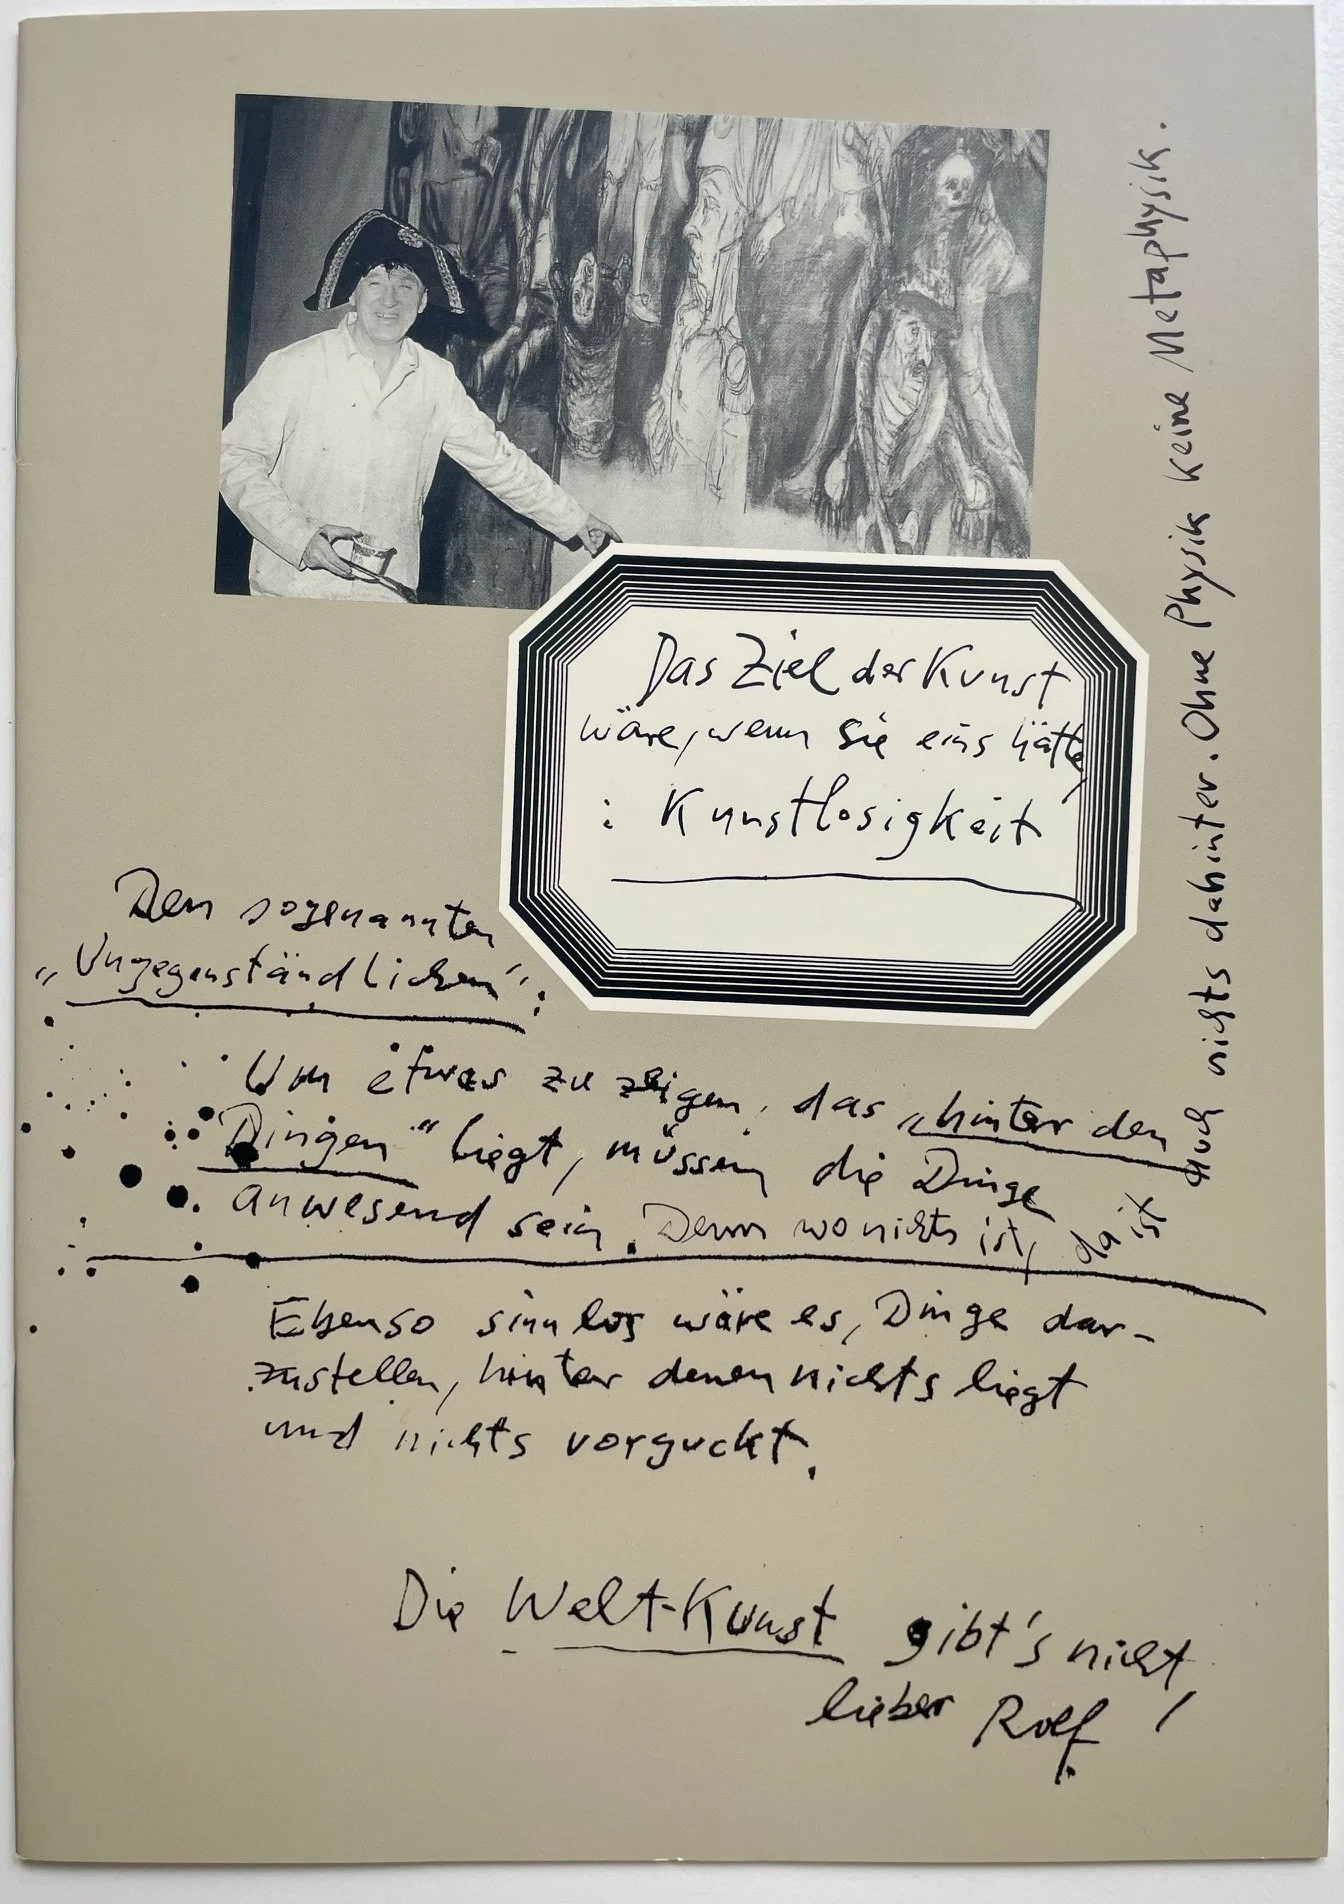 Das Ziel der Kunst
wäre, wenn sie eins hätte,
: Kunstlosigkeit
Den sogenannten
"Ungegenständlichen":
Um etwas zu zeigen, das „hinter den
Dingen" liegt, müssen die Dinge
anwesend sein. Denn wo nichts ist, da ist
auch nichts dahinter. Ohne Physik keine Metaphysik.
Ebenso sinnlos wäre es, Dinge dar-
zustellen, hinter denen nichts liegt
und nichts vorguckt.
Die Welt-Kunst gibt's nicht,
lieber Rolf!